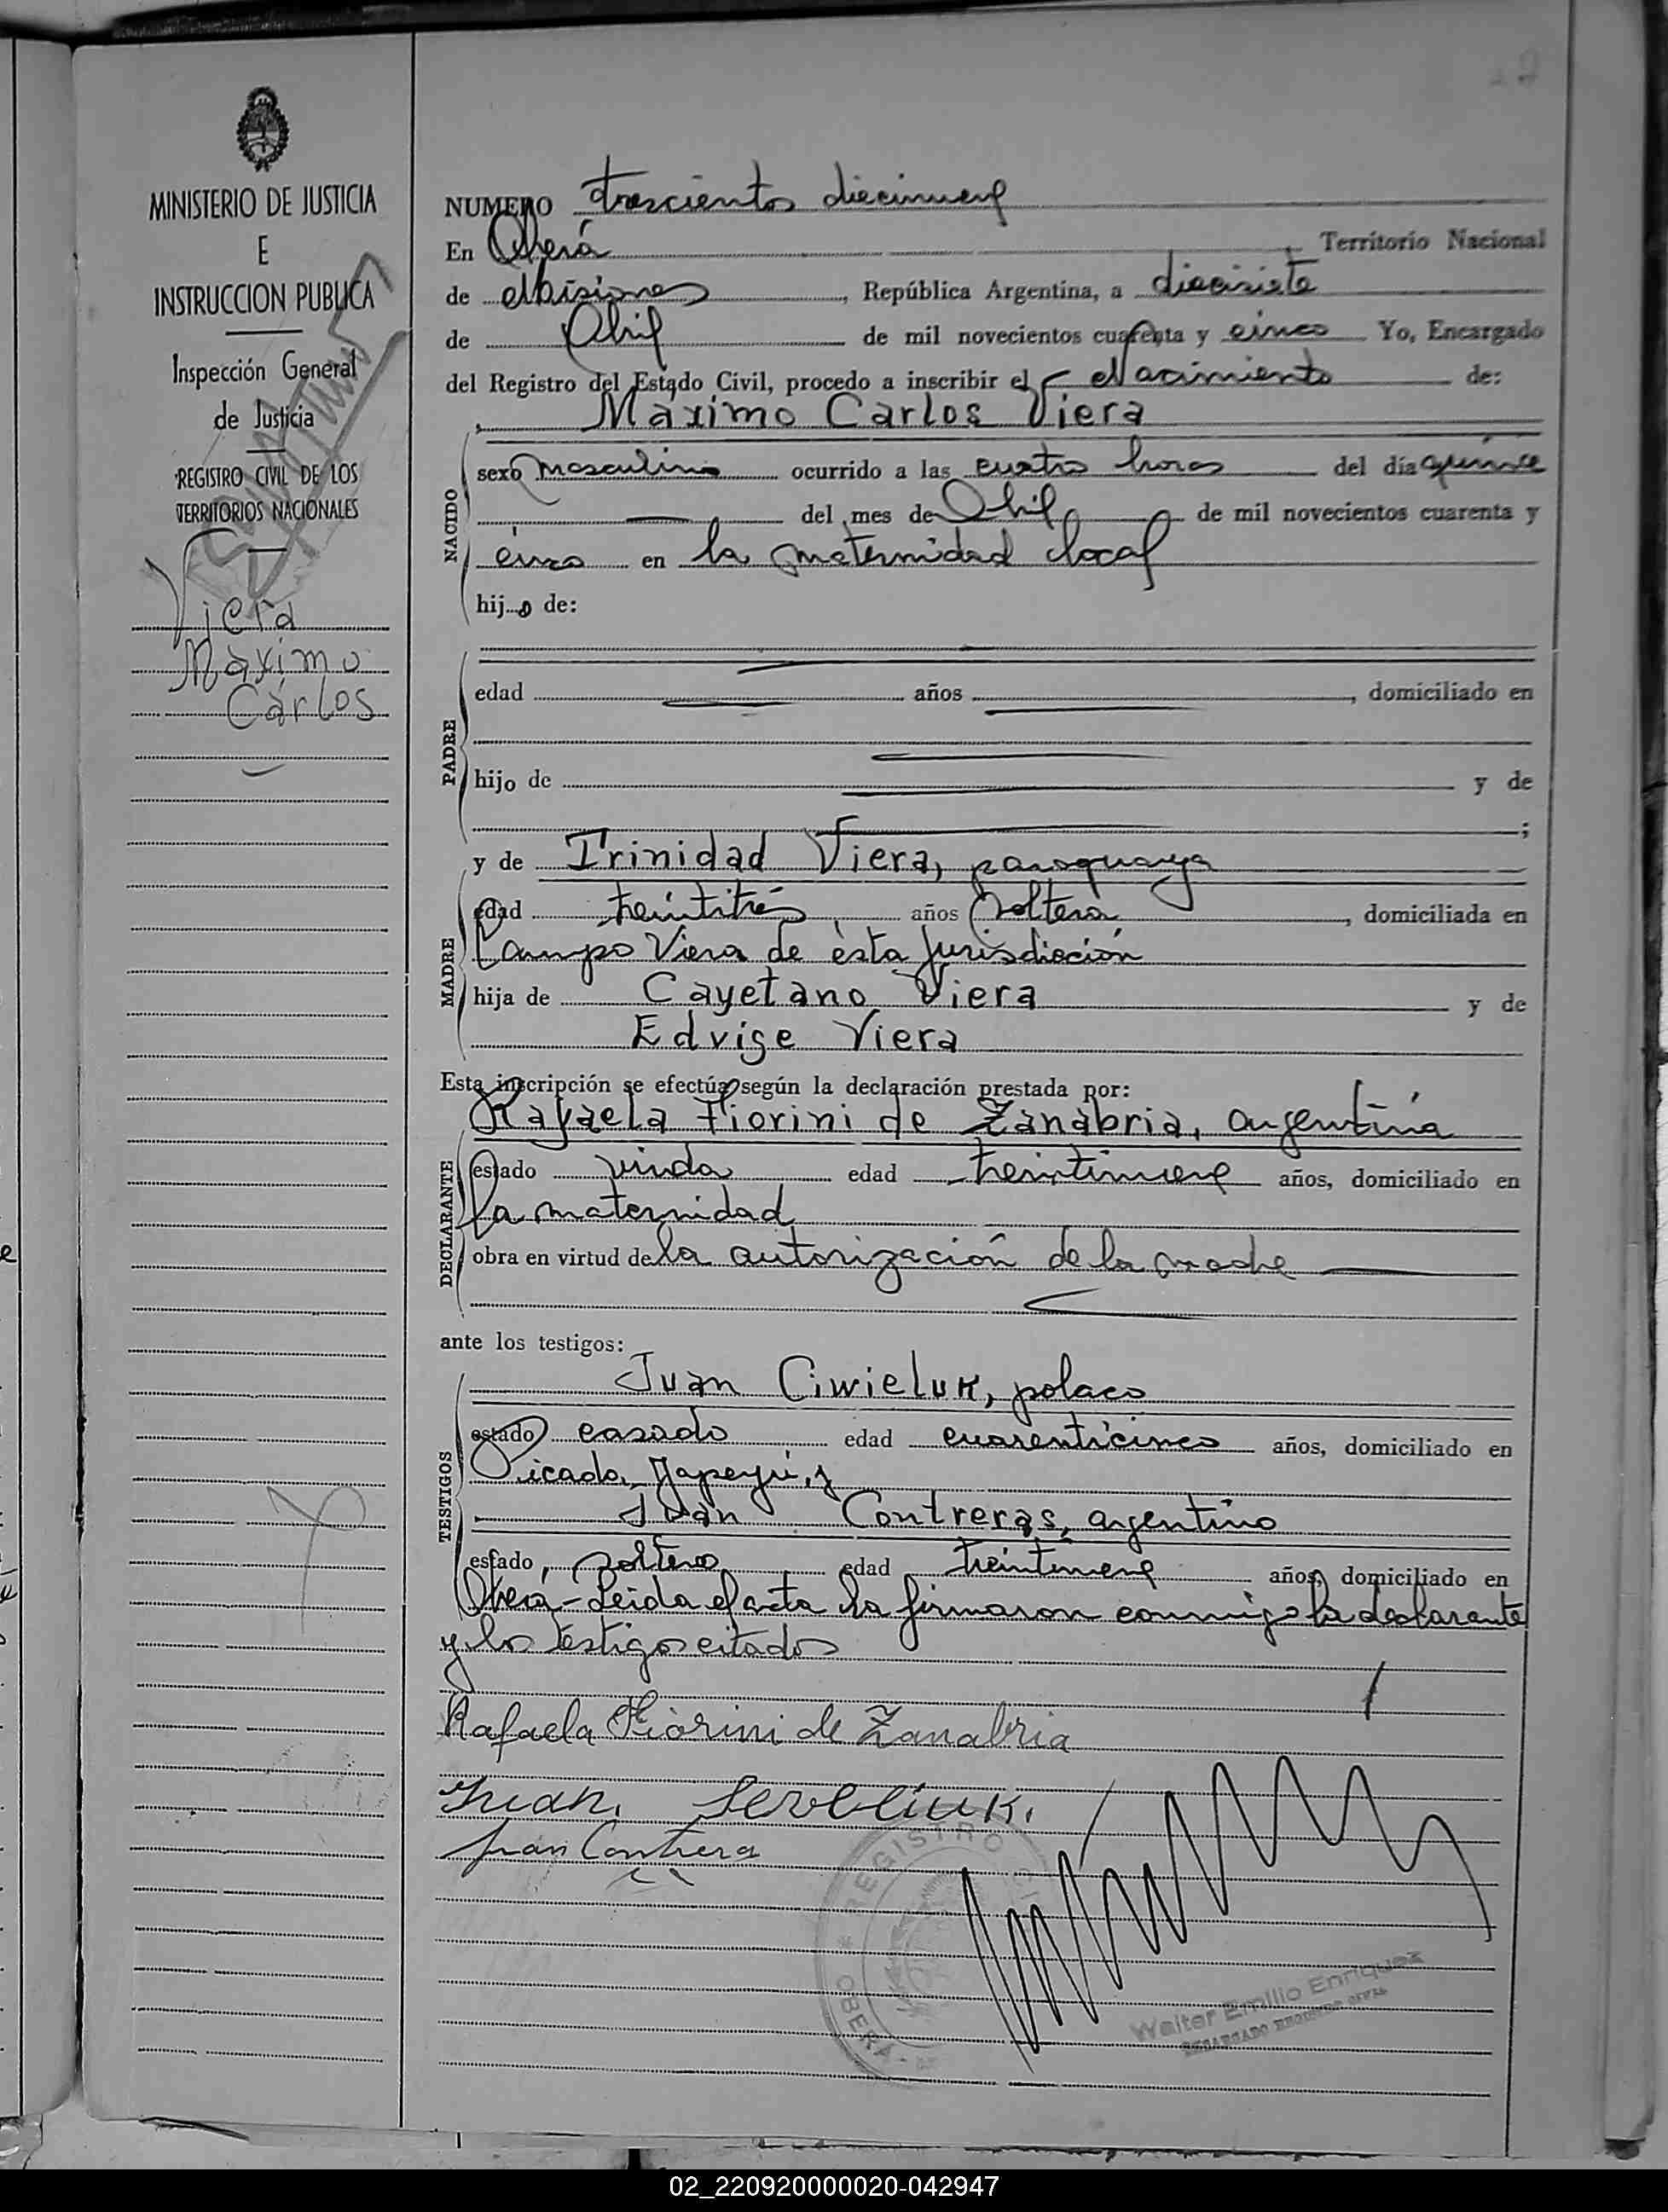 MINISTERIO DE JUSTICIA
E
INSTRUCCION PUBLICA
Inspección General
de Justicia
REGISTRO CIVIL DE LOS
TERRITORIOS NACIONALES
Viera
Máximo
Carlos
NUMERO trescientos diecinueve
En Oberá, Territorio Nacional
de Misiones, República Argentina, a diecisiete
de Abril de mil novecientos cuarenta y cinco Yo, Encargado
del Registro del Estado Civil, procedo a inscribir el Nacimiento de:
Máximo Carlos Viera
NACIDO
sexo masculino ocurrido a las cuatro horas del día quince
del mes de Abril de mil novecientos cuarenta y
cinco en la maternidad local
hijo de:
PADRE
edad años , domiciliado en
hijo de y de
;
y de Trinidad Viera, paraguaya
MADRE
edad treintitrés años soltera, domiciliada en
Campo Viera de ésta jurisdicción
hija de Cayetano Viera y de
Edvige Viera
Esta inscripción se efectúa según la declaración prestada por:
Rafaela Fiorini de Zanabria, argentina
DECLARANTE
estado viuda edad treintinueve años, domiciliado en
la maternidad
obra en virtud de la autorización de la madre
ante los testigos:
TESTIGOS
Juan Ciwieluk, polaco
estado casado edad cuarenticinco años, domiciliado en
Picada Yapeyú, y
Juan Contreras, argentino
estado soltero edad treintinueve años, domiciliado en
Oberá - Leida el acta la firmaron conmigo la declarante
y los testigos citados
Rafaela Fiorini de Zanabria
Juan
Juan Contrera
REGISTRO
OBERA
Walter Emilio Enriquez
ENCARGADO REGISTRO CIVIL
02_220920000020-042947